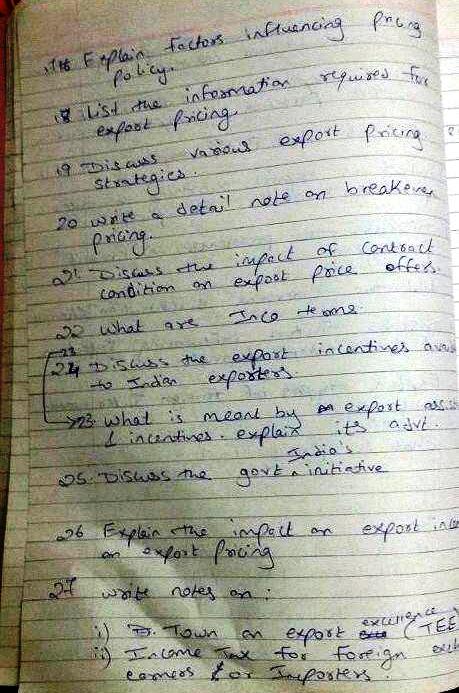 Explain factors influencing Pricing
policy.
18 List the information required for
export pricing.
19 Discuss various export pricing
strategies.
20 write a detail note on breakeven
pricing.
21 Discuss the impact of contract
condition on export price offers.
22 What are Inco terms
23
24 Discuss the export incentives
to Indian exporters.
23. What is meant by export
& incentives. explain its advt.
India's
25. Discuss the govt initiative
26 Explain the impact on export
on export Pricing
27 write notes on:
i) Town on export excellence (TEE)
ii) Income Tax for foreign
earners & or Importers.